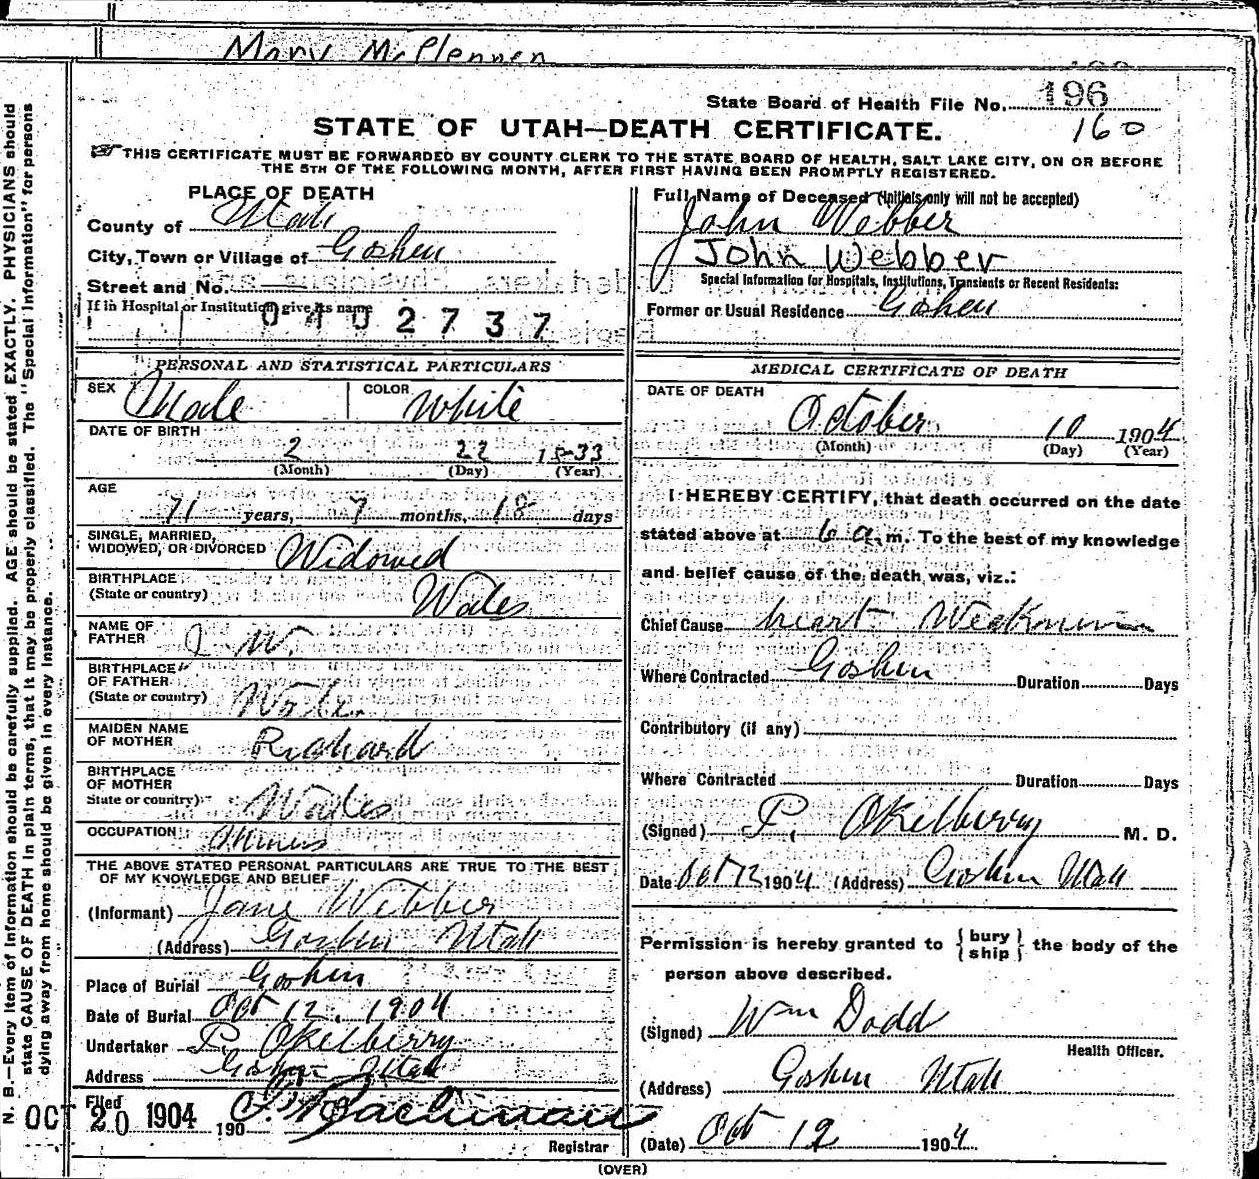 Mary McPlennen
State Board of Health File No. 196
STATE OF UTAH—DEATH CERTIFICATE.
160
THIS CERTIFICATE MUST BE FORWARDED BY COUNTY CLERK TO THE STATE BOARD OF HEALTH, SALT LAKE CITY, ON OR BEFORE
THE 5TH OF THE FOLLOWING MONTH, AFTER FIRST HAVING BEEN PROMPTLY REGISTERED.
PLACE OF DEATH
County of Utah
City, Town or Village of Goshen
Street and No.
If in Hospital or Institution give its name
0402737
Full Name of Deceased (Initials only will not be accepted)
John Webber
John Webber
Special Information for Hospitals, Institutions, Transients or Recent Residents:
Former or Usual Residence Goshen
PERSONAL AND STATISTICAL PARTICULARS
SEX Male COLOR White
DATE OF BIRTH
2 22 1833
(Month) (Day) (Year)
AGE
71 years, 7 months, 18 days
SINGLE, MARRIED,
WIDOWED, OR DIVORCED Widowed
BIRTHPLACE
(State or country) Wales
NAME OF
FATHER J W.
BIRTHPLACE
OF FATHER
(State or country) Wales
MAIDEN NAME
OF MOTHER Richard
BIRTHPLACE
OF MOTHER
State or country) Wales
OCCUPATION
THE ABOVE STATED PERSONAL PARTICULARS ARE TRUE TO THE BEST
OF MY KNOWLEDGE AND BELIEF
(Informant) Jane Webber
(Address) Goshen Utah
Place of Burial Goshen
Date of Burial Oct 12, 1904
Undertaker P. Okelberry
Address Goshen Utah
Filed
OCT 20 1904 190
Registrar
MEDICAL CERTIFICATE OF DEATH
DATE OF DEATH
October 10 1904
(Month) (Day) (Year)
I HEREBY CERTIFY, that death occurred on the date
stated above at 6 a.m. To the best of my knowledge
and belief cause of the death was, viz.:
Chief Cause heart Weakness
Where Contracted Goshen Duration Days
Contributory (if any)
Where Contracted Duration Days
(Signed) P. Okelberry M. D.
Date Oct 12 1904 (Address) Goshen Utah
Permission is hereby granted to {bury
ship} the body of the
person above described.
(Signed) Wm Dodd
Health Officer.
(Address) Goshen Utah
(Date) Oct 12 1904
(OVER)
N. B.—Every item of information should be carefully supplied. AGE should be stated EXACTLY. PHYSICIANS should
state CAUSE OF DEATH in plain terms, that it may be properly classified. The "Special Information" for persons
dying away from home should be given in every instance.